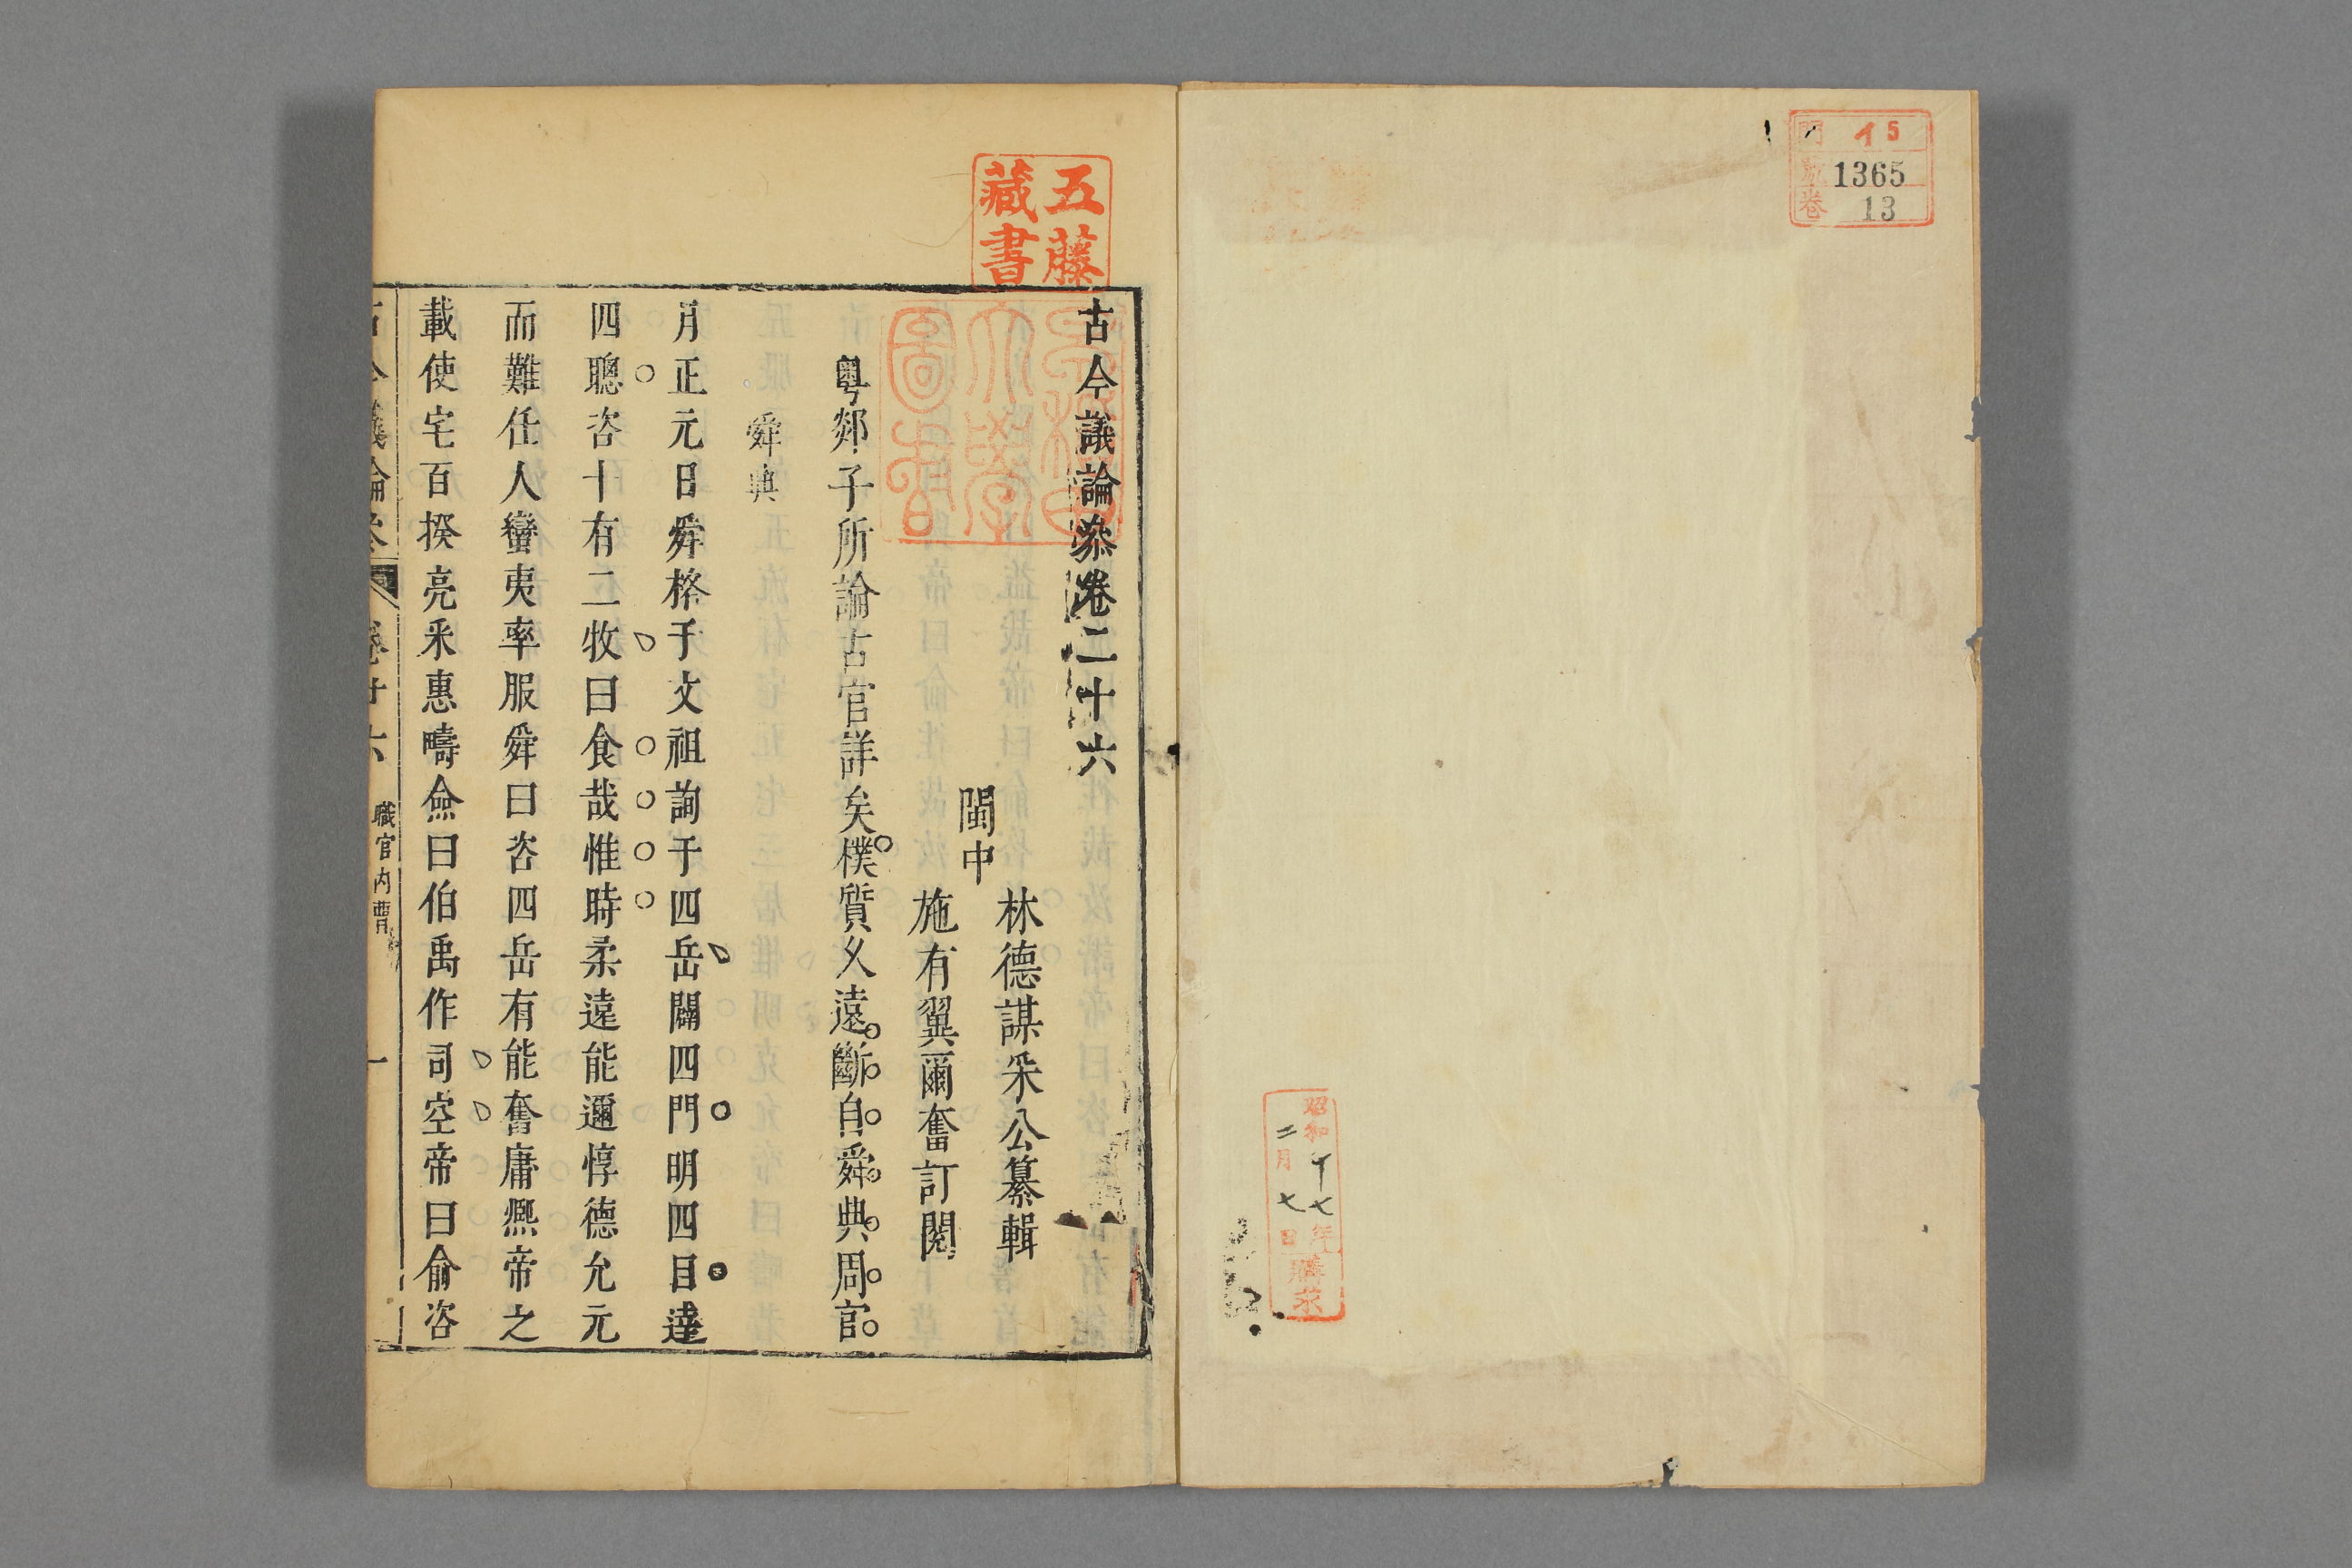 門 イ5
號 1365
卷 13
昭和十七年
二月七日
購求
五藤
藏書
早稲田
大學
圖書
古今議論叅卷二十六
閩中
林德謀采公纂輯
施有翼爾奮訂閱
粤郯子所論古官詳矣樸質乆遠斷自舜典周官
舜典
月正元日舜格于文祖詢于四岳闢四門明四目達
四聰咨十有二牧曰食哉惟時柔遠能邇惇德允元
而難任人蠻夷率服舜曰咨四岳有能奮庸熙帝之
載使宅百揆亮采惠疇僉曰伯禹作司空帝曰俞咨
古今議論叅 卷廿六 職官内曹 一